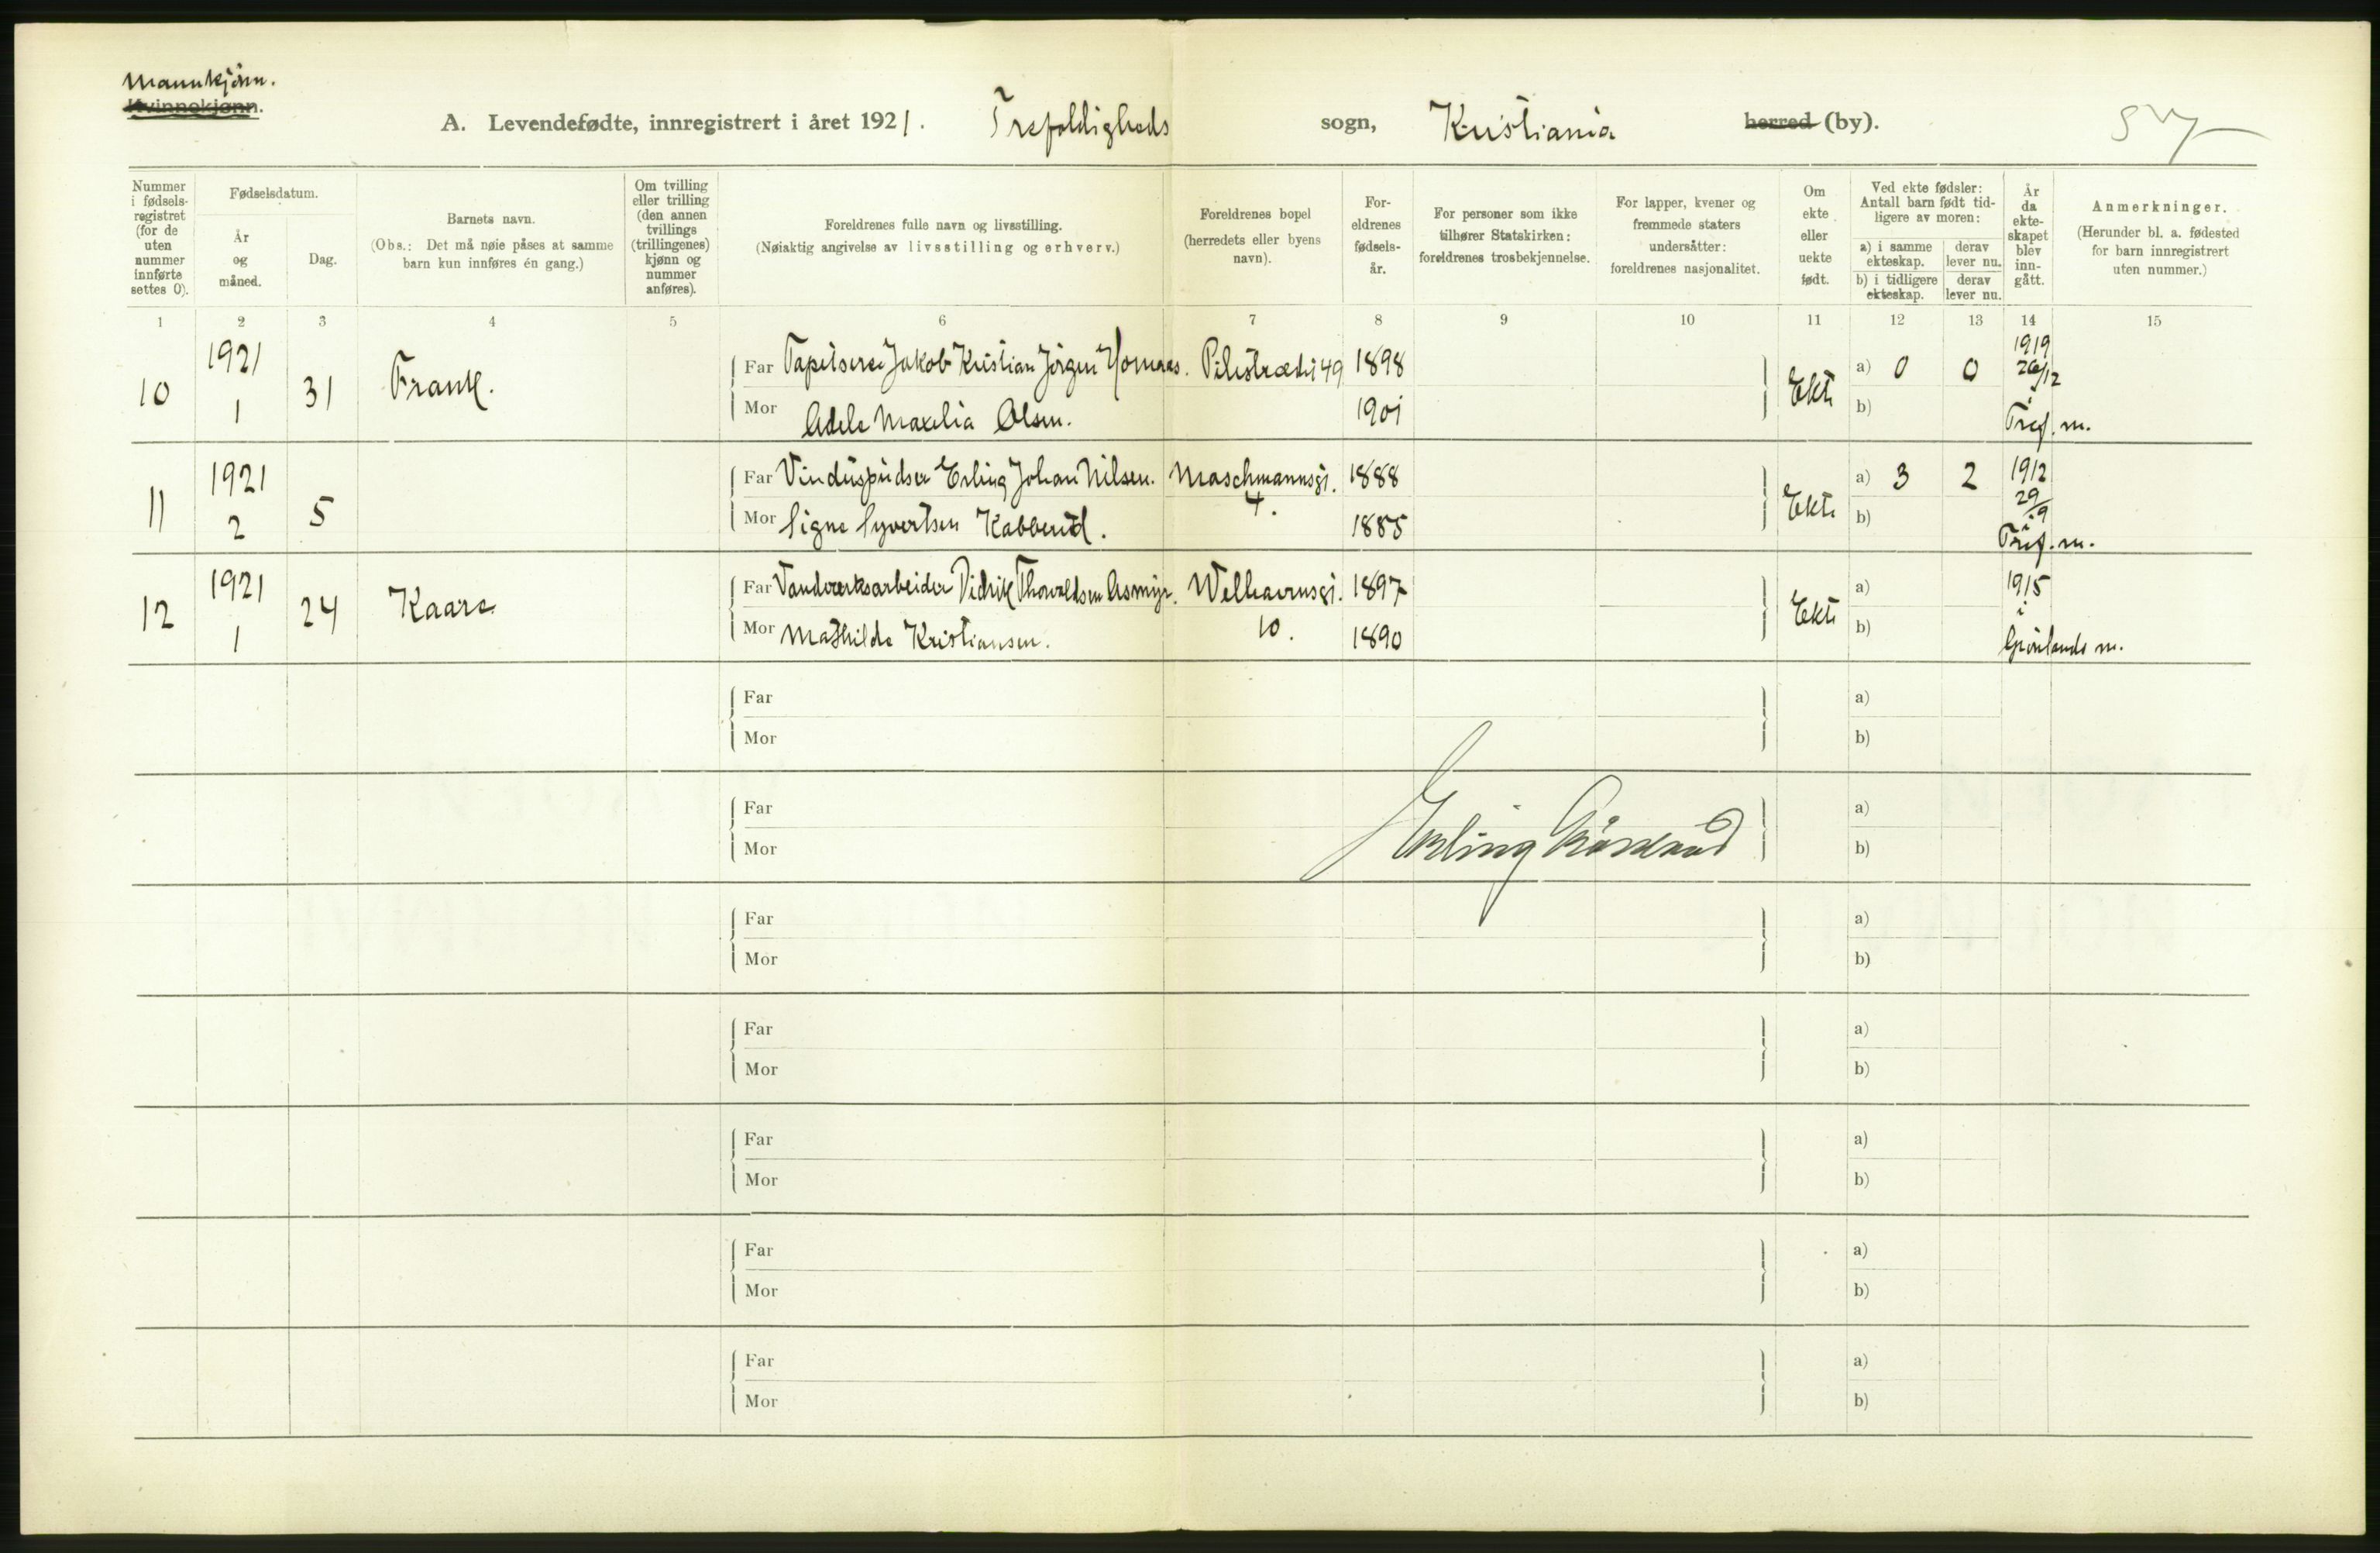 Mannkjønn.
Kvinnekjønn.
A. Levendefødte, innregistrert i året 1921. Trefoldigheds sogn, Kristiania herred (by).
Nummer i fødselsregistret (for de uten nummer innførte settes 0).
Fødselsdatum.
År og måned.
Dag.
Barnets navn.
(Obs.: Det må nøie påses at samme barn kun innføres én gang.)
Om tvilling eller trilling (den annen tvillings (trillingenes) kjønn og nummer anføres).
Foreldrenes fulle navn og livsstilling.
(Nøiaktig angivelse av livsstilling og erhverv.)
Foreldrenes bopel (herredets eller byens navn).
Foreldrenes fødselsår.
For personer som ikke tilhører Statskirken: foreldrenes trosbekjennelse.
For lapper, kvener og fremmede staters undersåtter: foreldrenes nasjonalitet.
Om ekte eller uekte født.
Ved ekte fødsler: Antall barn født tidligere av moren:
a) i samme ekteskap. derav lever nu.
b) i tidligere ekteskap. derav lever nu.
År da ekteskapet blev inngått.
Anmerkninger.
(Herunder bl. a. fødested for barn innregistrert uten nummer.)
1 2 3 4 5 6 7 8 9 10 11 12 13 14 15
10 1921 1 31 Frank.
Far Tapetserer Jakob Kristian Jörgen Pilestrædet 49 1898
Mor Adele Olsen. 1901
Ekte a) 0 0 b) 1919 26/12 i Tref. m.
11 1921 2 5
Far Vinduspudser Erling Johan Nilsen. Maschmannsgt. 4. 1888
Mor Signe Syvertsen 1885
Ekte a) 3 2 b) 1912 29/9 i Tref. m.
12 1921 1 24 Kaare
Far Vandværksarbeider Didrik Thorvaldsen Asmyr. Welhavensgt. 10. 1897
Mor Mathilde Kristiansen. 1890
Ekte a) b) 1915 i Grönlands m.
Far a)
Mor b)
Far Erling a)
Mor b)
Far a)
Mor b)
Far a)
Mor b)
Far a)
Mor b)
Far a)
Mor b)
Far a)
Mor b)